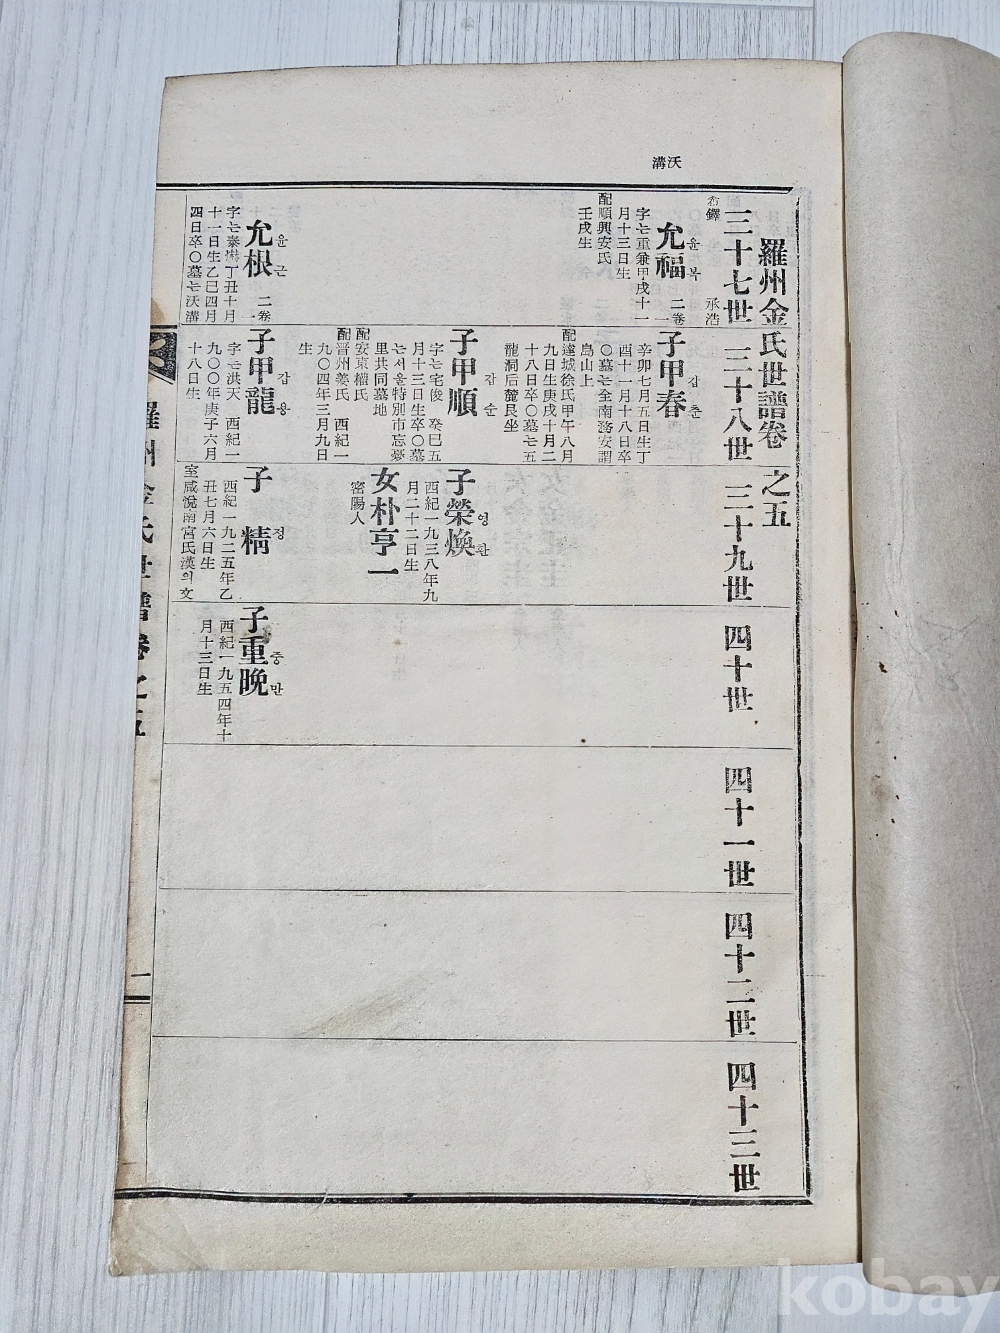 沃溝
羅州金氏世譜卷之五
三十七世
承浩
允福
윤복
二卷
一
字는重兼甲戌十一
月十三日生
配順興安氏
壬戌生
允根
윤근
二卷
一
字는泰
丁丑十月
十一日生乙巳四月
四日卒〇墓는沃溝
三十八世
子甲春
갑춘
辛卯七月五日生丁
酉十一月十八日卒
〇墓는全南務安謂
島山上
配達城徐氏甲午八月
九日生庚戌十月二
十八日卒〇墓는五
龍洞后麓艮坐
子甲順
갑순
字는宅俊 癸巳五
月十三日生卒〇墓
는서울特別市忘憂
里共同墓地
配安東權氏
配晋州姜氏 西紀一
九〇四年三月九日
生
子甲龍
갑용
字는洪天 西紀一
九〇〇年庚子六月
十八日生
三十九世
子榮煥
영환
西紀一九三八年九
月二十二日生
女朴亨一
密陽人
子 精
정
西紀一九二五年乙
丑七月六日生
室咸悅南宮氏漢의女
四十世
子重晚
중만
西紀一九五四年十
月十三日生
四十一世
四十二世
四十三世
羅州金氏世譜卷之五
一
kobay